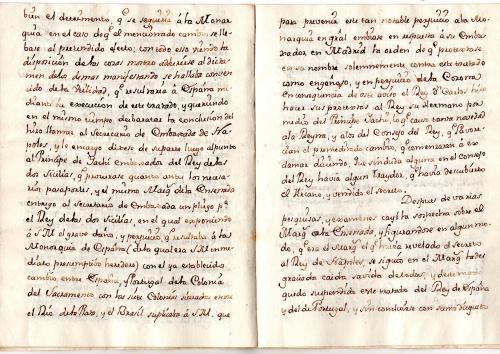 bien el detrimento, q.e se seguiria á la Monar
quia en el caso de q.e el mencionado cambio se lle
base al pretendido efecto; con todo eso viendo la
disposicion de las cosas mostró adherirse al dicta
men de los demas manifestando se hallaba conven
cido de la utilidad, q.e resultaria á España me
diante la execucion de este tratado, y queriendo
en el mismo tiempo desbaratar la conclusion del
hizo llamar al Secretario de Embaxada de Ná
poles, y le encargó dixese de su parte luego al punto
al Principe de Yachi Embaxador del Rey de las
dos Sicilias, q.e procurase quanto antes los necesa
rios pasaportes, y el mismo Marq.s de la Ensenada
entregó al Secretario de Embaxada un pliego p.a
el Rey de las dos Sicilias, en el qual exponiendo
á S.M. el grave daño, y perjuicio q.e resultaba á la
Monarquia de España (de la qual era S.M. inme
diato presumptivo heredero) con el ya establecido
cambio entre España, y Portugal de la Colonia
del Sacramento con las siete Colonias situadas entre
el Rio de la Plata, y el Brasil suplicaba á S.M. que
para prevenir este tan notable perjuicio á la Mo
narquia en gral embiase en respuesta á su Emba
xador en Madrid la orden de q.e protestase
en su nombre solemnemente contra este tratado
como engañoso, y en perjuicio de la Corona
En consequencia de este aviso el Rey D.n Carlos hizo
hacer sus protestas al Rey su Hermano por
medio del Principe Yachi, lo q.e causó tanta novedad
a la Reyna, y a los del Consejo del Rey, q.e favore
cian el premeditado cambio, q.e comenzaron á ex
clamar diciendo, que sin duda alguna en el Consejo
del Rey havia algun traydor, q.e havia descubierto
el Arcano, y vendido el secreto.
Despues de varias
pesquisas, y examenes cayó la sospecha sobre el
Marq.s de la Ensenada, y figurandose en algun mo
do, q.e era el Marq.s el q.e havia revelado el secreto
al Rey de Napoles, se siguió en el Marq.s la des
graciada caida savida de todos, y de este modo
quedó suspendido este tratado del Rey de España
y del de Portugal, y sin concluirse con sumo disgusto